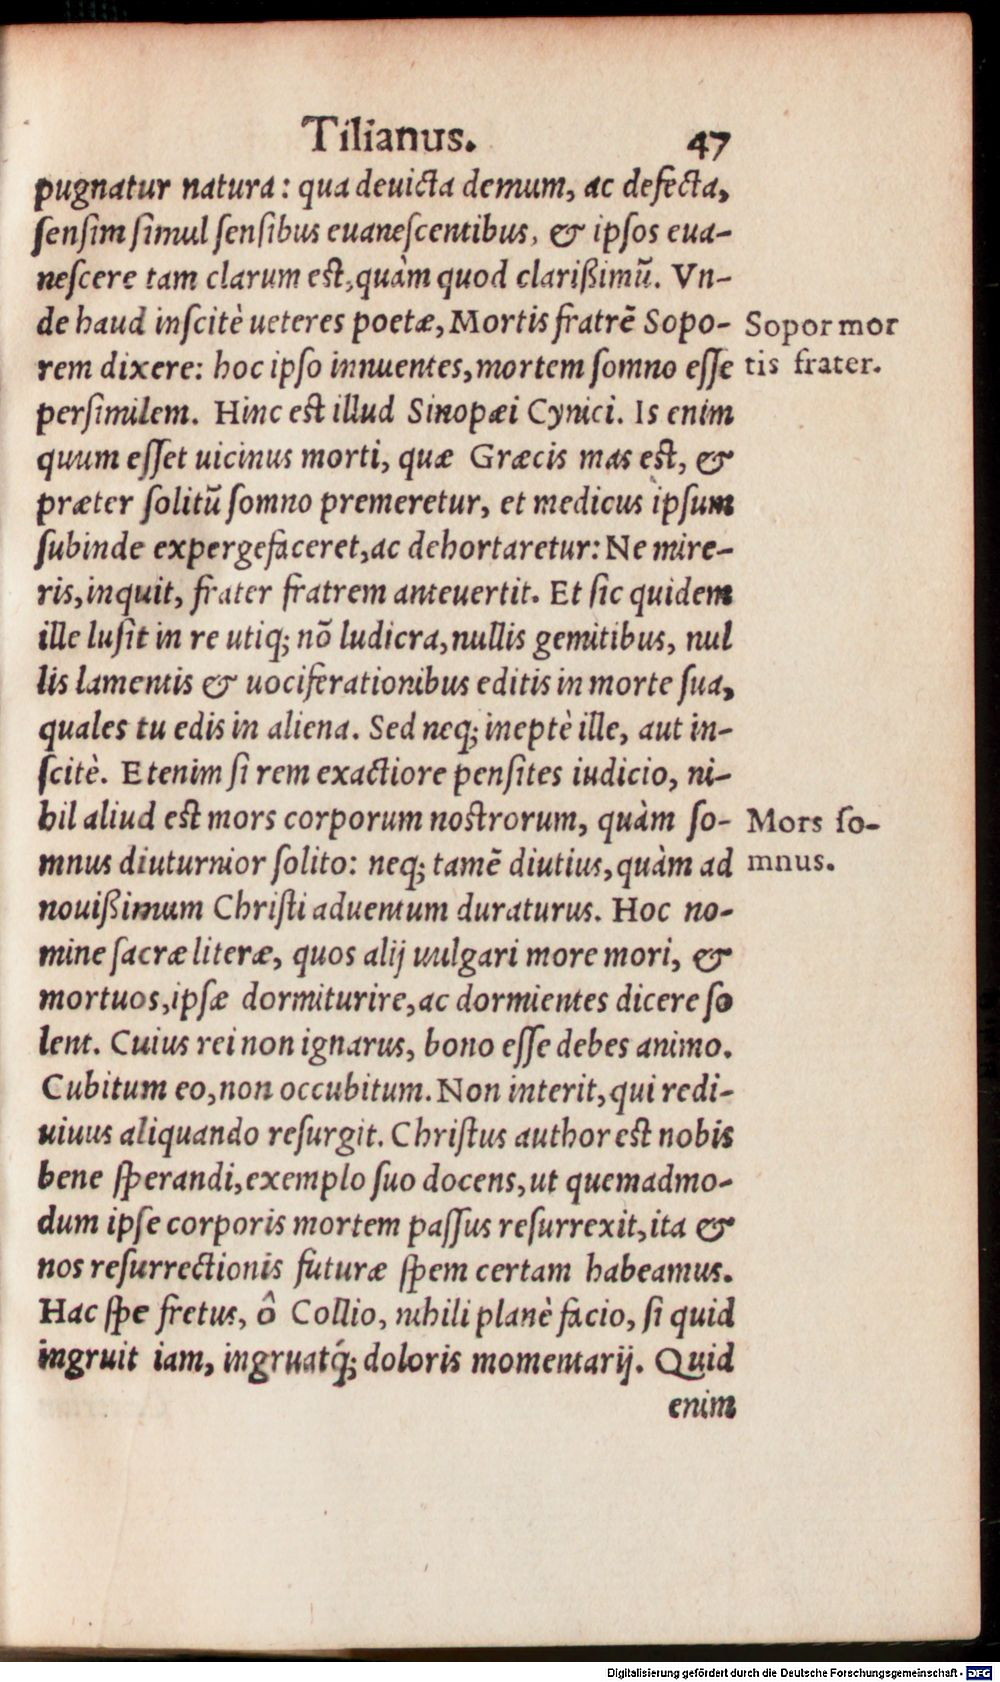 Tilianus. 47
pugnatur natura: qua deuicta demum, ac defecta,
sensim simul sensibus euanescentibus, & ipsos eua-
nescere tam clarum est, quàm quod clarißimũ. Vn-
de haud inscitè ueteres poetæ, Mortis fratrẽ Sopo-
Sopor mor
rem dixere: hoc ipso innuentes, mortem somno esse
tis frater.
persimilem. Hinc est illud Sinopæi Cynici. Is enim
quum esset uicinus morti, quæ Græcis mas est, &
præter solitũ somno premeretur, et medicus ipsum
subinde expergefaceret, ac dehortaretur: Ne mire-
ris, inquit, frater fratrem anteuertit. Et sic quidem
ille lusit in re utiq; nõ ludicra, nullis gemitibus, nul
lis lamentis & uociferationibus editis in morte sua,
quales tu edis in aliena. Sed neq; ineptè ille, aut in-
scitè. Etenim si rem exactiore pensites iudicio, ni-
hil aliud est mors corporum nostrorum, quàm so-
Mors so-
mnus diuturnior solito: neq; tamẽ diutius, quàm ad
mnus.
nouißimum Christi aduentum duraturus. Hoc no-
mine sacræ literæ, quos alij uulgari more mori, &
mortuos, ipsæ dormiturire, ac dormientes dicere so
lent. Cuius rei non ignarus, bono esse debes animo.
Cubitum eo, non occubitum. Non interit, qui redi-
uiuus aliquando resurgit. Christus author est nobis
bene sperandi, exemplo suo docens, ut quemadmo-
dum ipse corporis mortem passus resurrexit, ita &
nos resurrectionis futuræ spem certam habeamus.
Hac spe fretus, ô Collio, nihili planè facio, si quid
ingruit iam, ingruatq́; doloris momentarij. Quid
enim
Digitalisierung gefördert durch die Deutsche Forschungsgemeinschaft - DFG